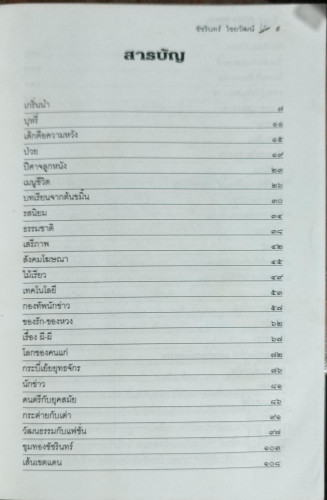 ชัชรินทร์ ไชยวัฒน์ ๕
สารบัญ
เกริ่นนำ ๗
บุหรี่ ๑๑
เด็กคือความหวัง ๑๕
ป่วย ๑๙
ปีศาจลูกหนัง ๒๓
เมนูชีวิต ๒๖
บทเรียนจากต้นขมิ้น ๓๐
รสนิยม ๓๔
ธรรมชาติ ๓๘
เสรีภาพ ๔๒
สังคมโฆษณา ๔๕
ไม้เรียว ๔๙
เทคโนโลยี ๕๓
กองทัพนักข่าว ๕๗
ของรัก-ของหวง ๖๒
เรื่อง ผี-ผี ๖๗
โลกของคนแก่ ๗๒
กระบี่เย้ยยุทธจักร ๗๖
นักข่าว ๘๑
ดนตรีกับยุคสมัย ๘๖
กระต่ายกับเต่า ๙๑
วัฒนธรรมกับแฟชั่น ๙๗
ขุมทองชัชรินทร์ ๑๐๓
เส้นเขตแดน ๑๐๘